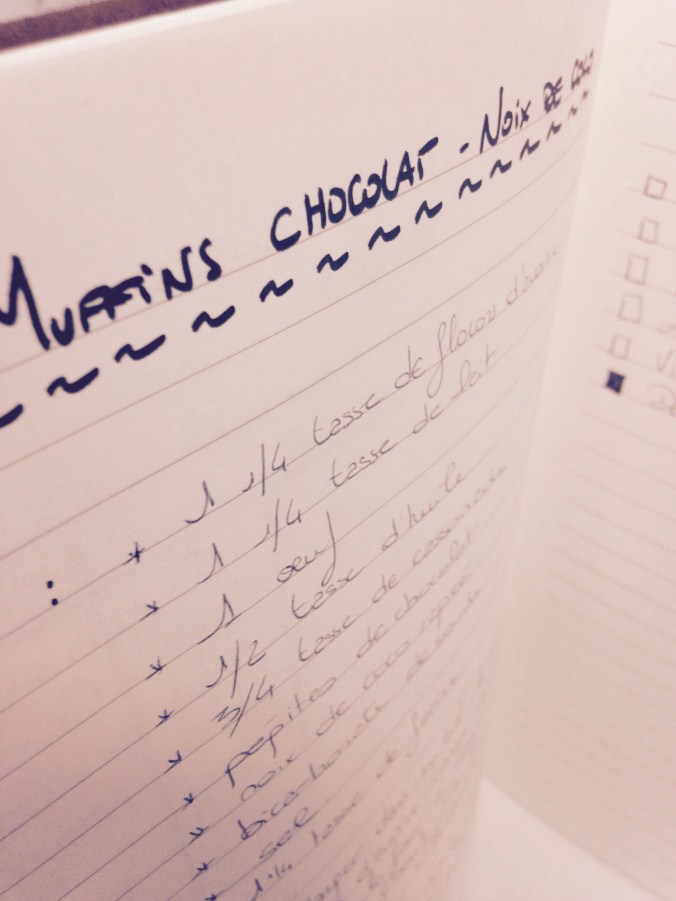 MUFFINS CHOCOLAT - NOIX DE COCO
: * 1 1/4 tasse de flocons d'avoine
* 1 1/4 tasse de lait
* 1 oeuf
* 1/2 tasse d'huile
* 3/4 tasse de cassonade
* pépites de chocolat
* noix de coco rapée
* bicarbonate de soude
* sel
* 1 1/4 tasse de farine